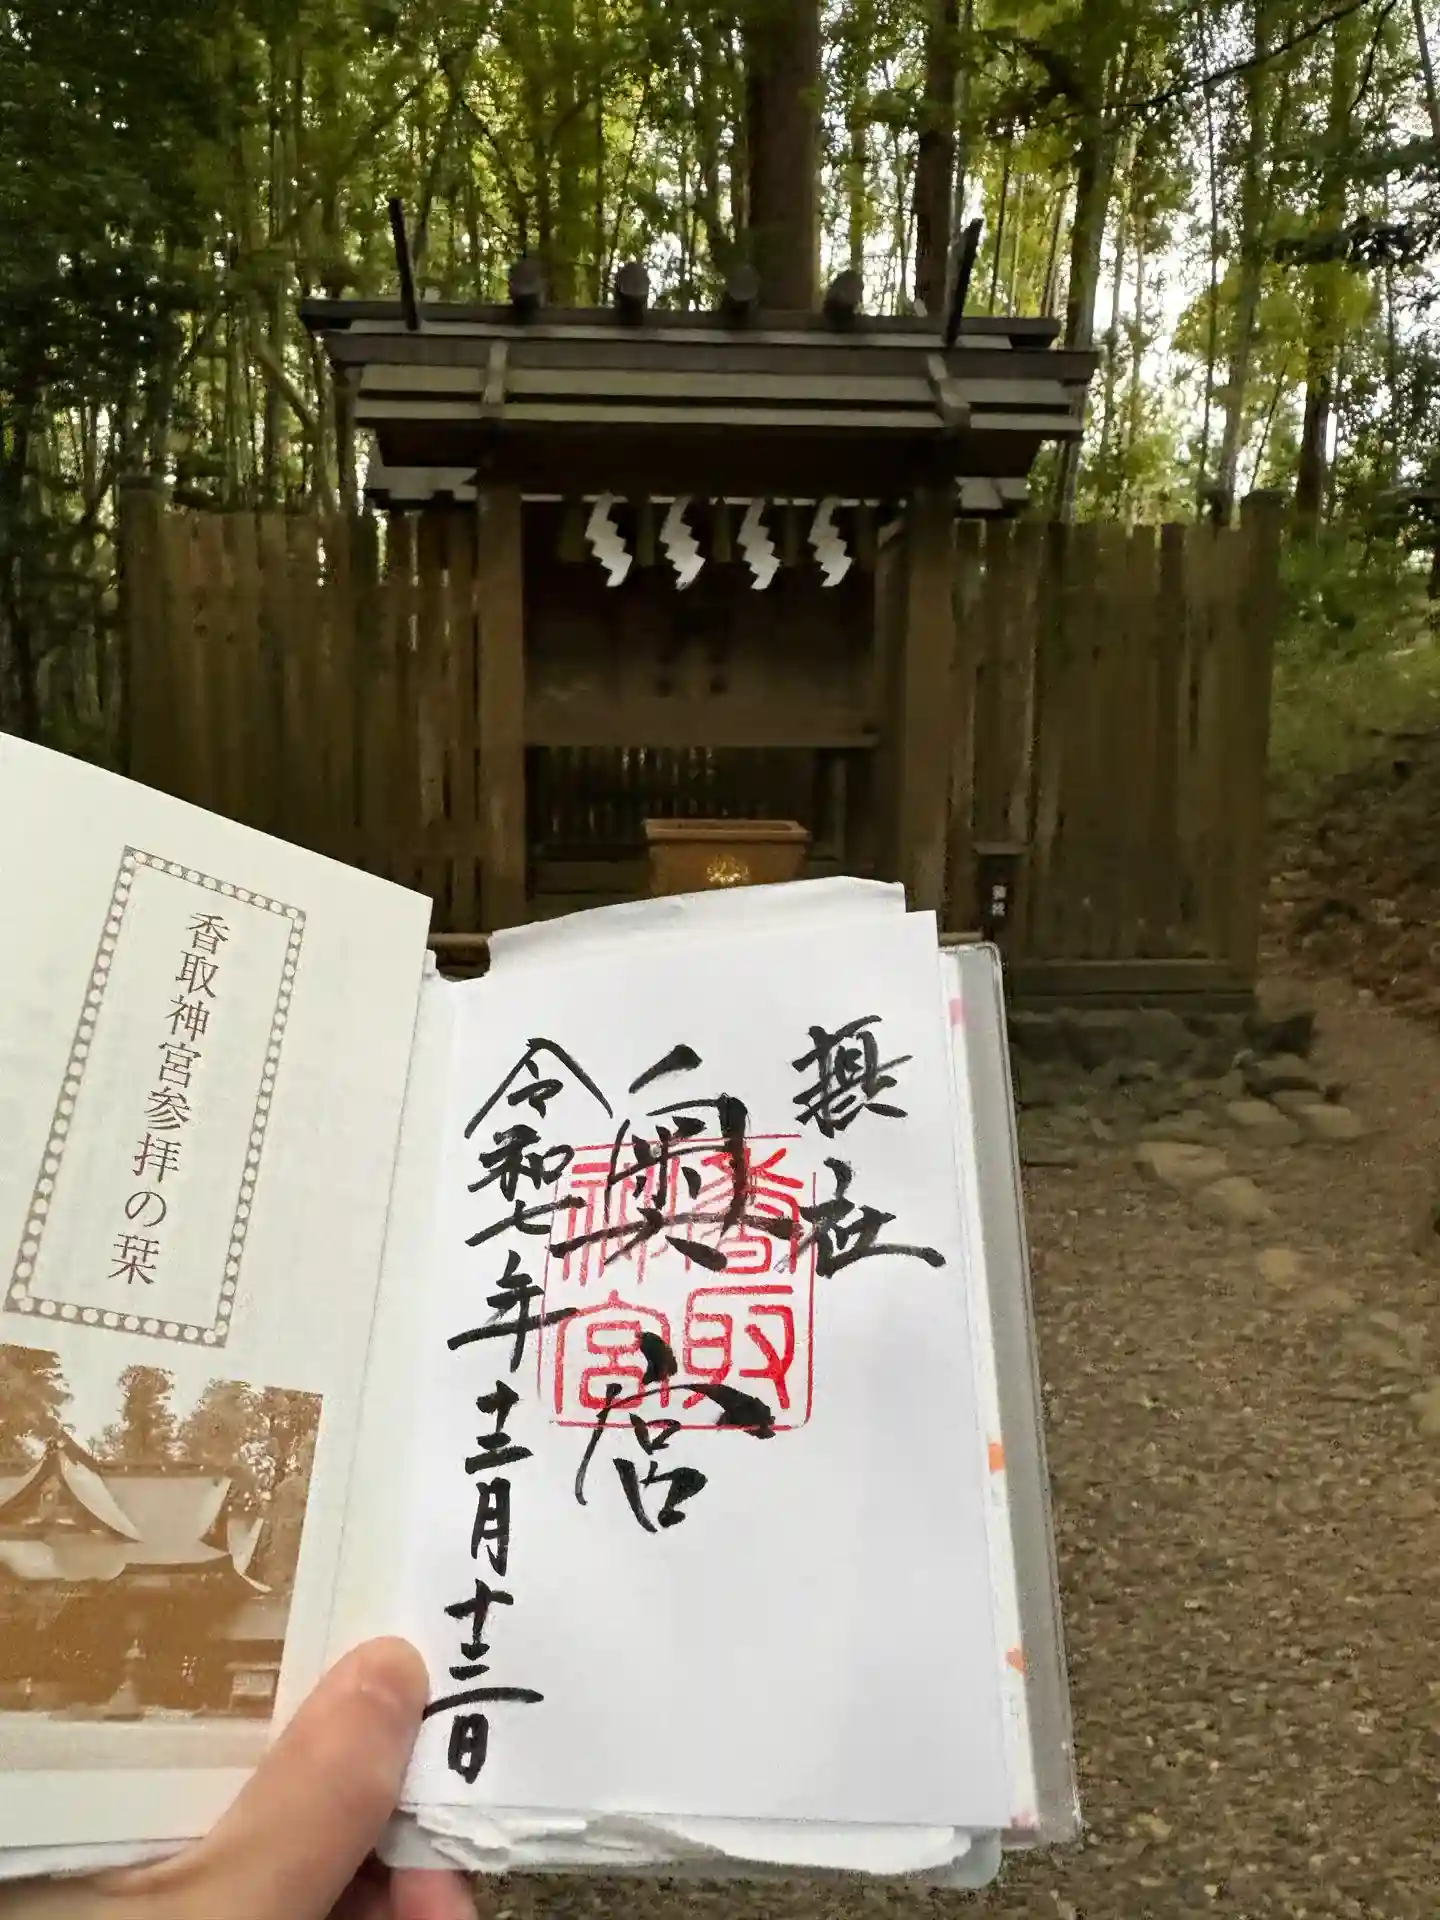 香取神宮参拝の栞
摂社
奥宮
香取神宮
令和七年十二月十二日